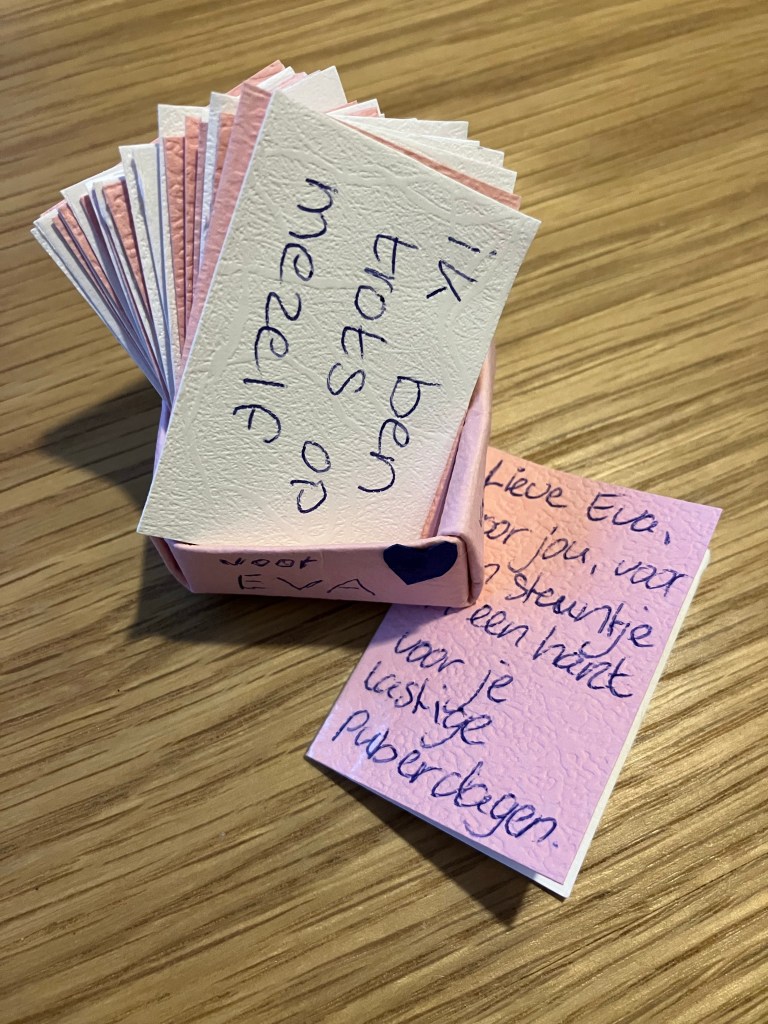 ik ben
trots op
mezelf
voor
EVA
Lieve Eva,
oor jou, voor
n steuntje
een hart
voor je
lastige
puberdagen.